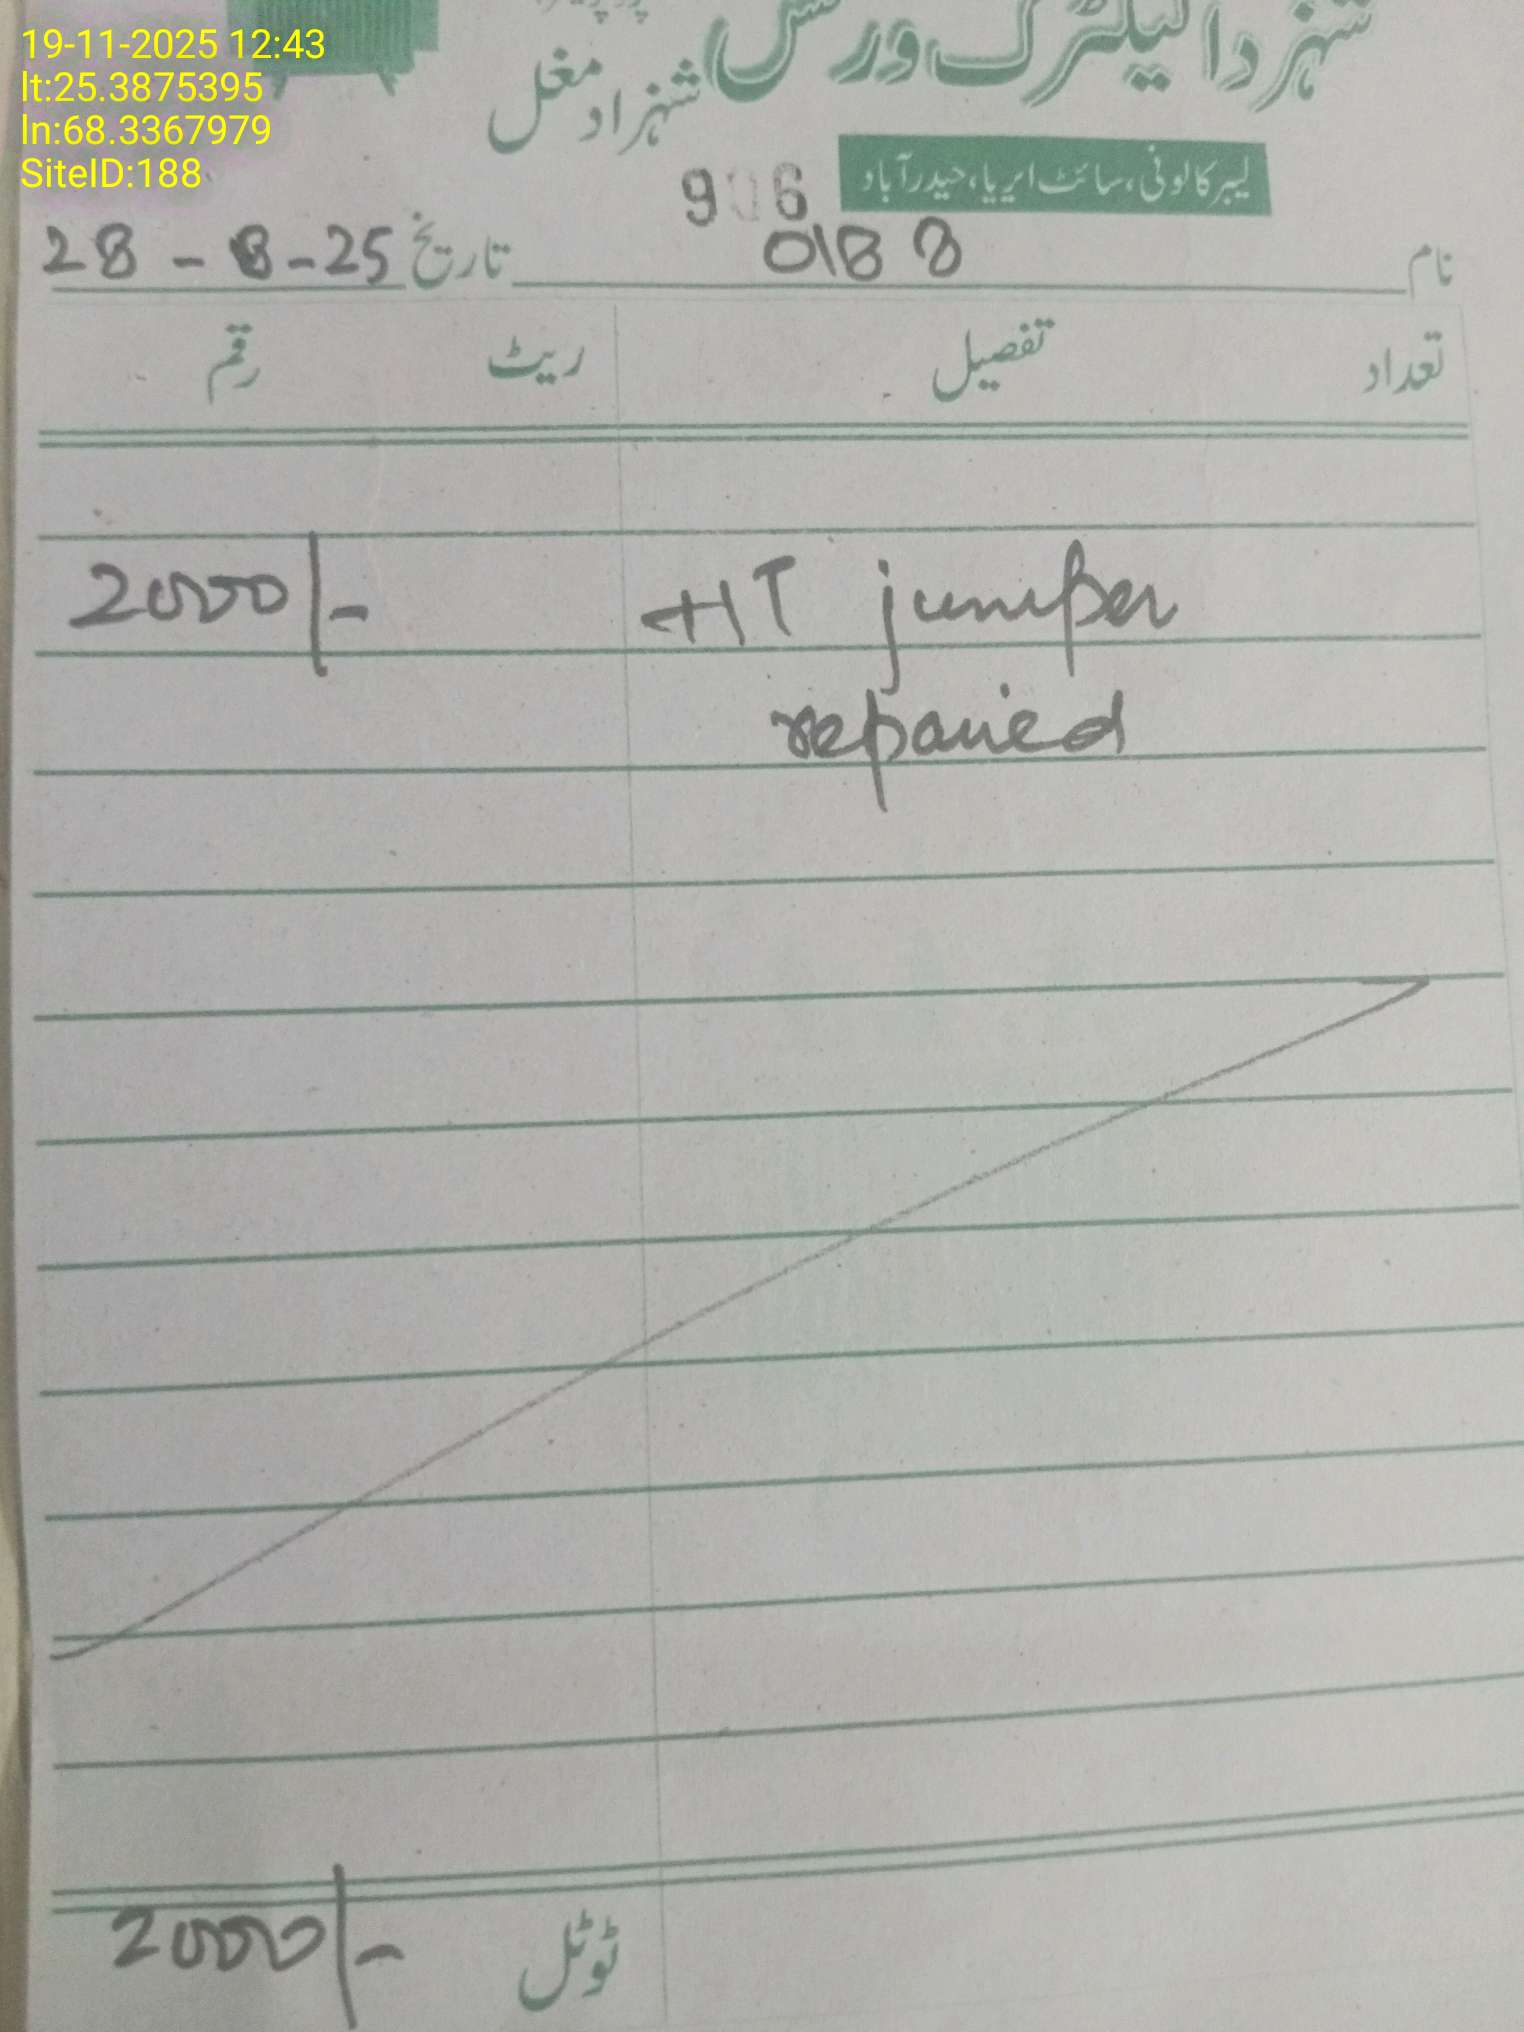 19-11-2025 12:43
lt:25.3875395
ln:68.3367979
SiteID:188
شہزاد الیکٹرک ورکس
شہزاد مغل
لیبر کالونی، سائٹ ایریا، حیدرآباد
906
نام 0188 تاریخ 28-8-25
تعداد تفصیل ریٹ رقم
HT jumper 2000/-
repaired
ٹوٹل 2000/-